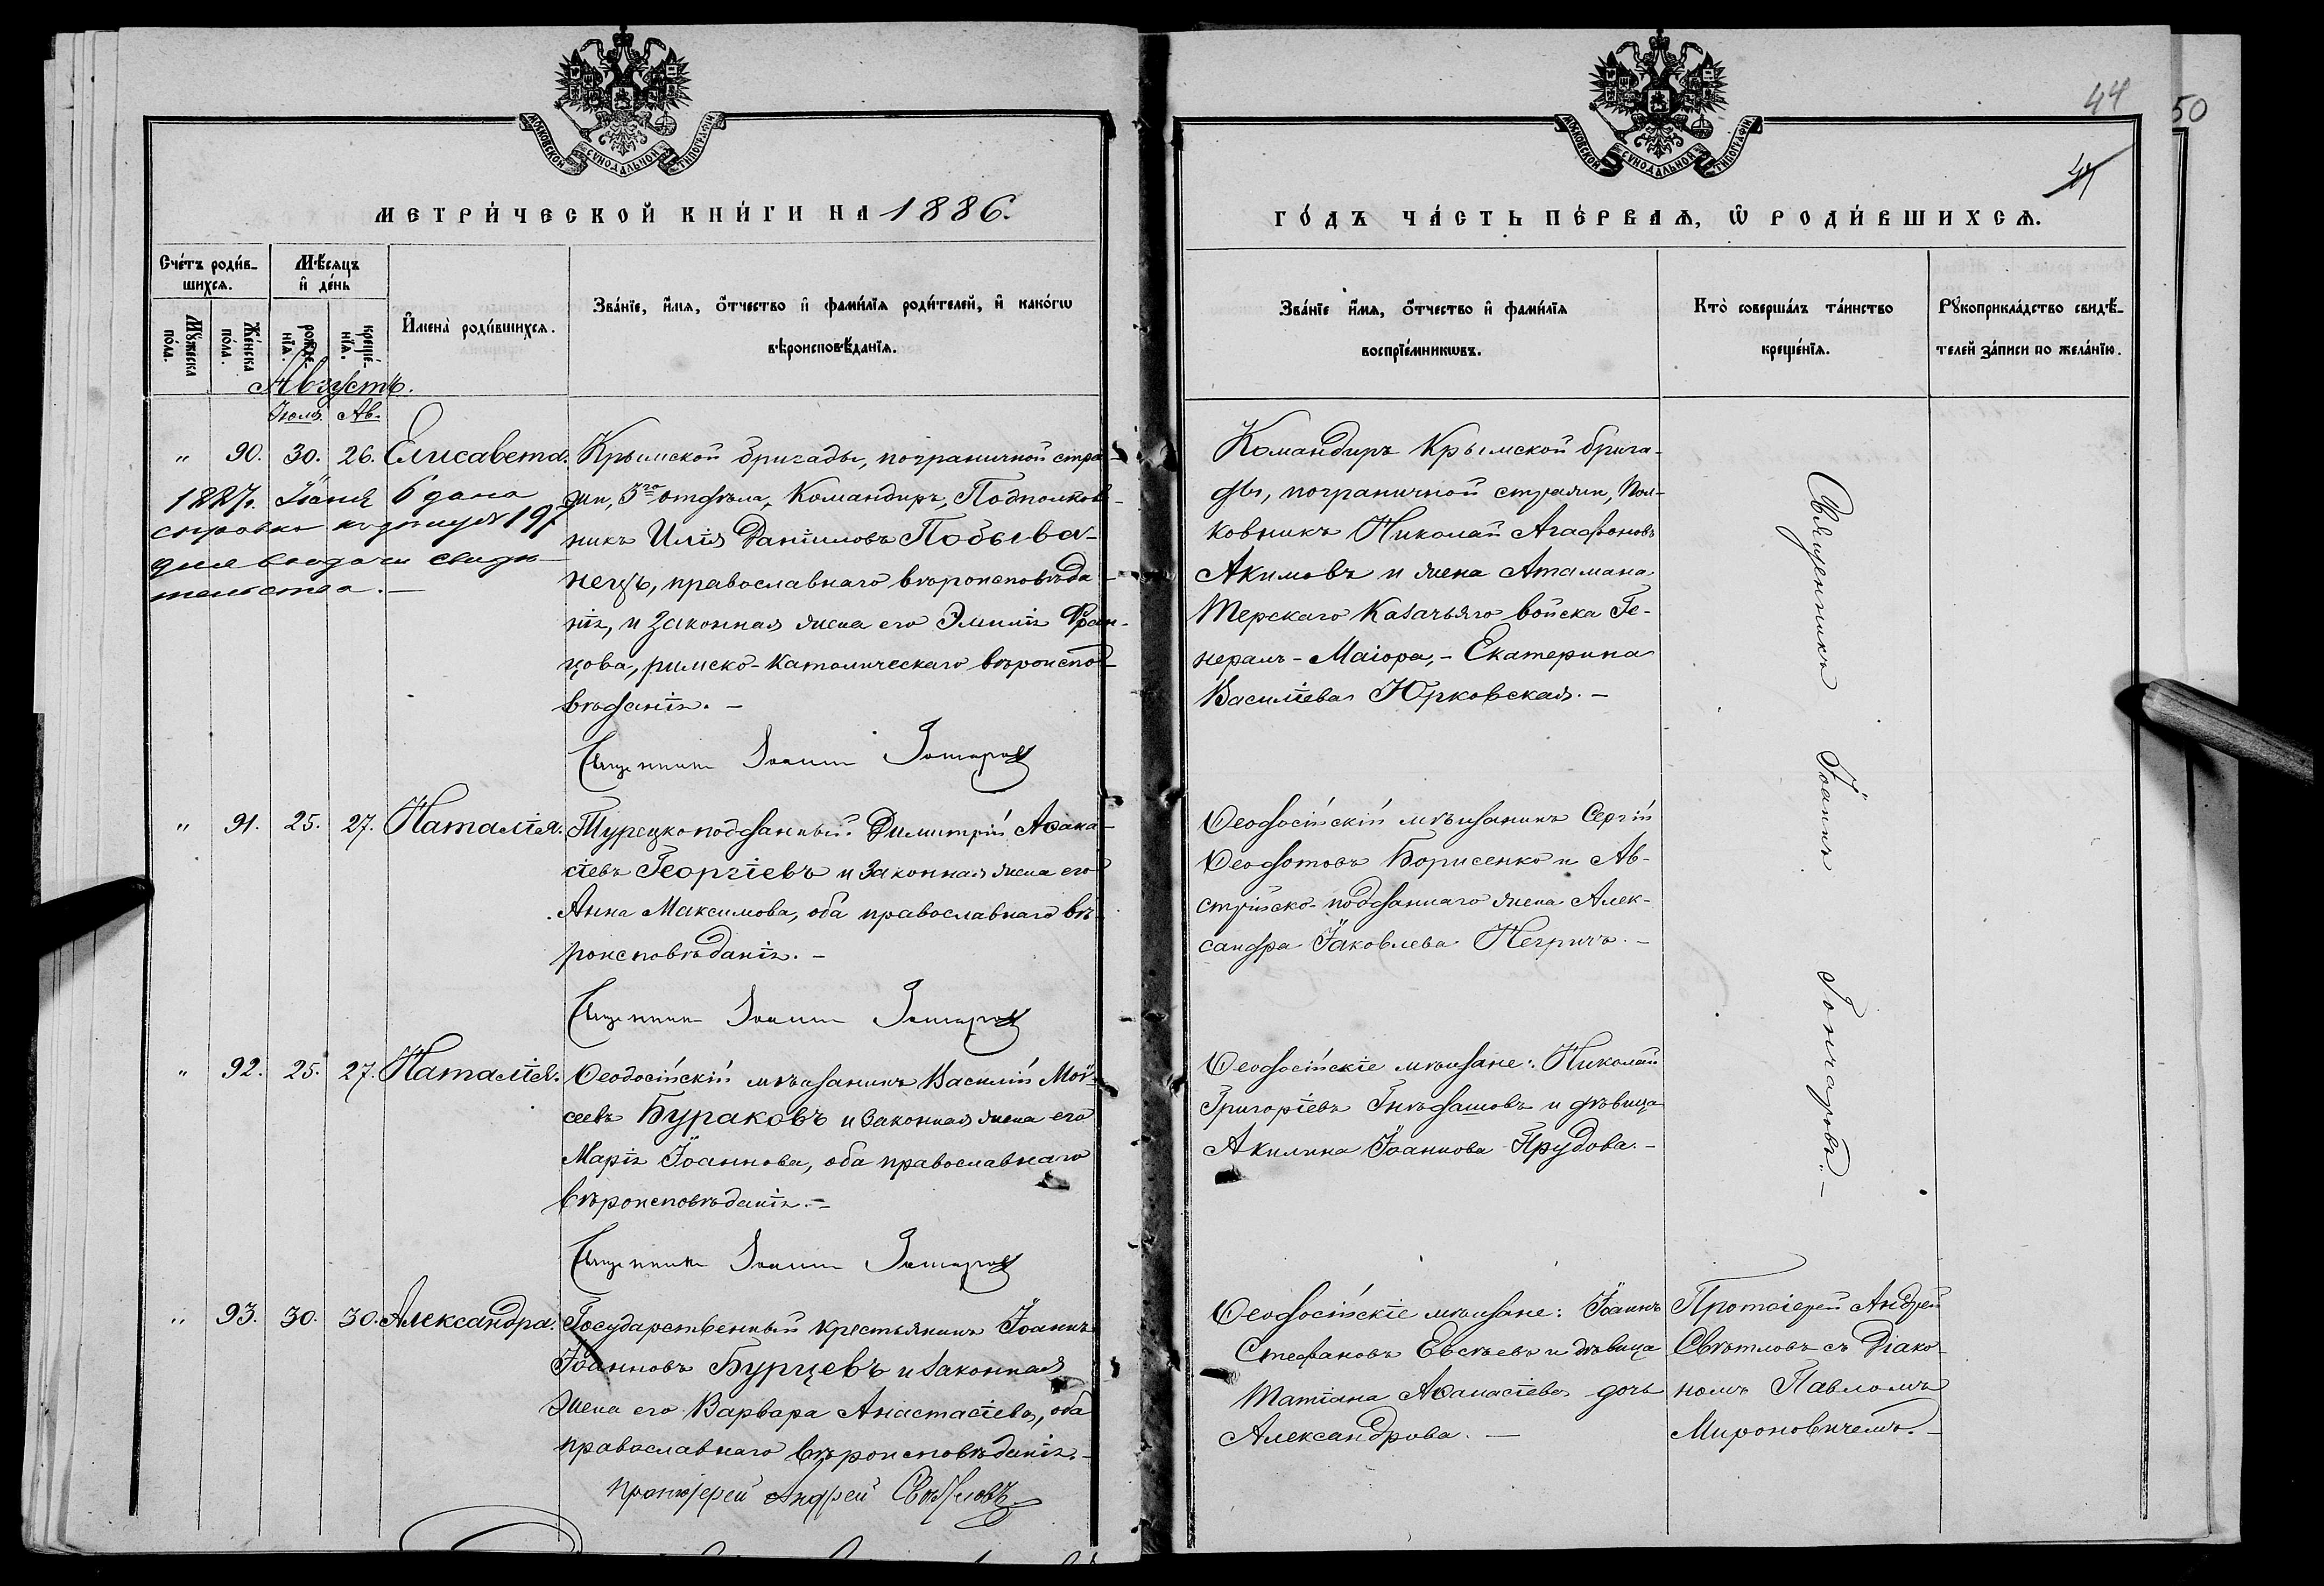 МОСКОВСКОЙ СѴНОДАЛЬНОЙ ТИПОГРАФІИ
МЕТРИ́ЧЕСКОЙ КНИ́ГИ НА 1886.
Сче́тъ роди́в-
шихсѧ.
Мѣ́сяцъ
и҆ де́нь
Мꙋ́жеска
по́ла.
Же́нска
по́ла.
рожде́-
нїѧ.
креще́-
нїѧ.
И҆мена̀ роди́вшихсѧ.
Зва́нїе, и҆́мѧ, ѻ҆́тчество и҆ фами́лїѧ роди́телей, и҆ како́гѡ
вѣроисповѣ́данїѧ.
Августъ.
Іюля Ав.
" 90. 30. 26. Елисавета.
Крымской бригады, пограничной стра-
жи, 3го отдѣла, Командиръ, Подполков-
никъ Илія Даніиловъ Побыва-
нецъ, православнаго вѣроисповѣда-
нія, и законная жена его Эмилія Фран-
цова, римско-католическаго вѣроиспо-
вѣданія. –
1887г. Іюня 6 дана
справка къ № 197
для выдачи свидѣ-
тельства. –
Священникъ Іоаннъ Гончаровъ
" 91. 25. 27. Наталія.
Турецкоподданный Димитрій Аѳана-
сіевъ Георгіевъ и законная жена его
Анна Максимова, оба православнаго вѣ-
роисповѣданія. –
Священникъ Іоаннъ Гончаровъ
" 92. 25. 27. Наталія.
Ѳеодосійскій мѣщанинъ Василій Мой-
сеевъ Бураковъ и законная жена его
Марія Іоаннова, оба православнаго
вѣроисповѣданія. –
Священникъ Іоаннъ Гончаровъ
" 93. 30. 30. Александра.
Государственный крестьянинъ Іоаннъ
Іоанновъ Бурцевъ и законная
жена его Варвара Анастасіева, оба
православнаго вѣроисповѣданія. –
Протоіерей Андрей Свѣтловъ
МОСКОВСКОЙ СѴНОДАЛЬНОЙ ТИПОГРАФІИ
44
50
ГО́ДЪ ЧА́СТЬ ПЕ́РВАѦ, Ѡ҆ РОДИ́ВШИХСѦ.
Зва́нїе и҆́мѧ, ѻ҆́тчество и҆ фами́лїѧ
воспрїе́мникѡвъ.
Кто̀ соверша́лъ та́инство
креще́нїѧ.
Рꙋкоприкла́дство свидѣ́-
телей за́писи по жела́нїю.
Командиръ Крымской брига-
ды, пограничной стражи, Пол-
ковникъ Николай Агаѳоновъ
Акимовъ и жена Атамана
Терскаго Казачьяго войска Ге-
нералъ-Маіора, – Екатерина
Василіева Юрковская. –
Ѳеодосійскій мѣщанинъ Сергій
Ѳеодотовъ Борисенко и Ав-
стрійско-подданнаго жена Алек-
сандра Іаковлева Негричъ. –
Ѳеодосійскіе мѣщане: Николай
Григоріевъ Гнѣдашовъ и дѣвица
Акилина Іоаннова Прудова. –
Ѳеодосійскіе мѣщане: Іоаннъ
Стефановъ Евсѣевъ и дѣвица
Татіана Аѳанасіева дочь
Александрова. –
Священникъ Іоаннъ Гончаровъ. –
Протоіерей Андрей
Свѣтловъ съ Діако-
номъ Павломъ
Мироновичемъ. –